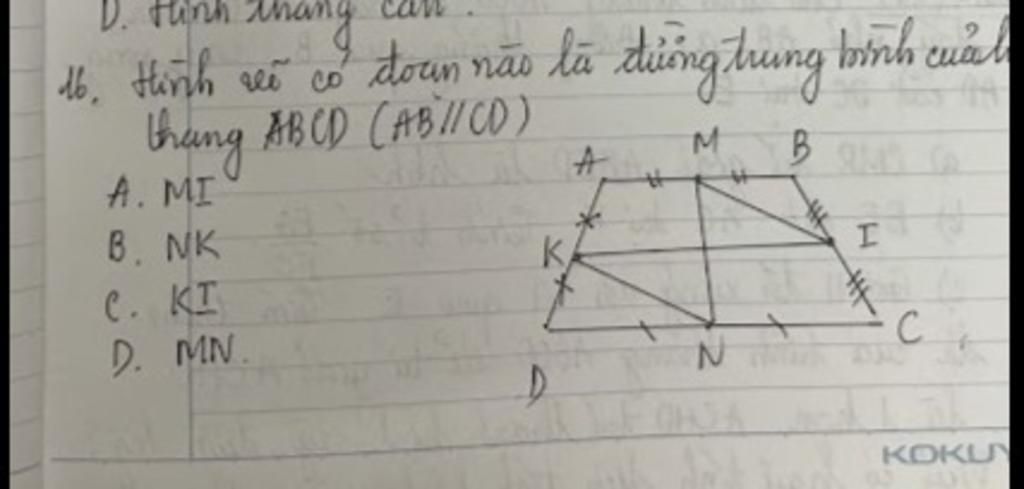 D. Hình thang cân.
16. Hình vẽ có đoạn nào là đường trung bình của h
thang ABCD (AB//CD)
A. MI
B. NK
C. KI
D. MN.
A M B
K I
D N C
KOKUY